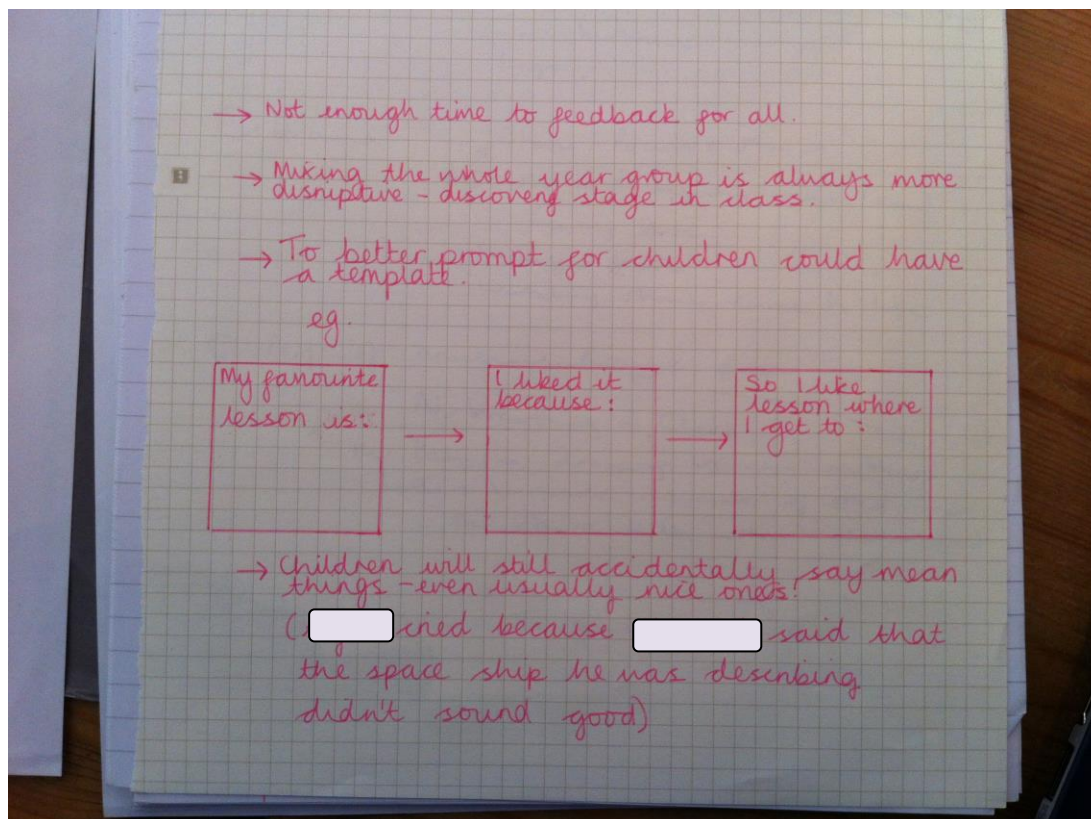 → Not enough time to feedback for all.
→ Mixing the whole year group is always more
disruptive - discovery stage in class.
→ To better prompt for children could have
a template.
eg.
My favourite
lesson is:
→
I liked it
because:
→
So I like
lesson where
I get to:
→ Children will still accidentally say mean
things - even usually nice ones!
( cried because said that
the space ship he was describing
didn't sound good)